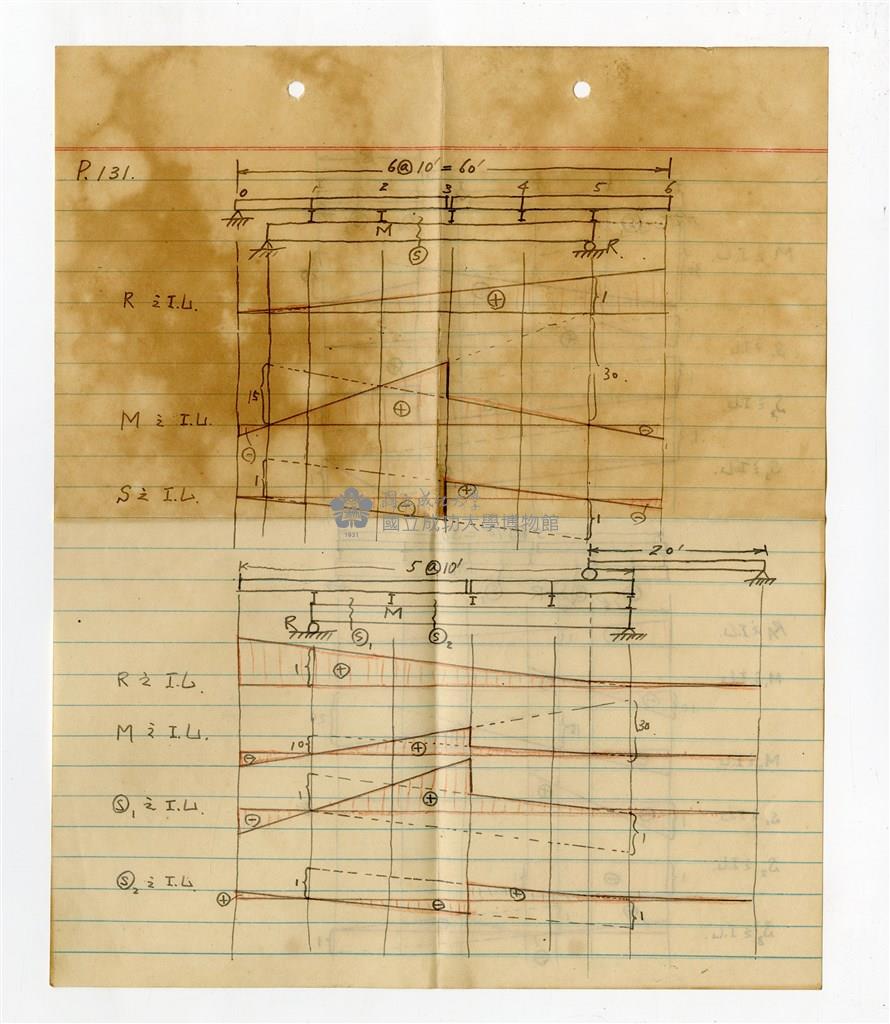 P. 131.
6@10' = 60'
0 1 2 3 4 5 6
M S R
R 之 I.L. + 1
30
15
M 之 I.L. + - -
1
S 之 I.L. - + -
1
國立成功大學
國立成功大學博物館
1931
20'
5@10'
M
R S1 S2
R 之 I.L. 1 +
M 之 I.L. 10 + - 30
S1 之 I.L. 1 + - 1
S2 之 I.L. 1 + - + 1